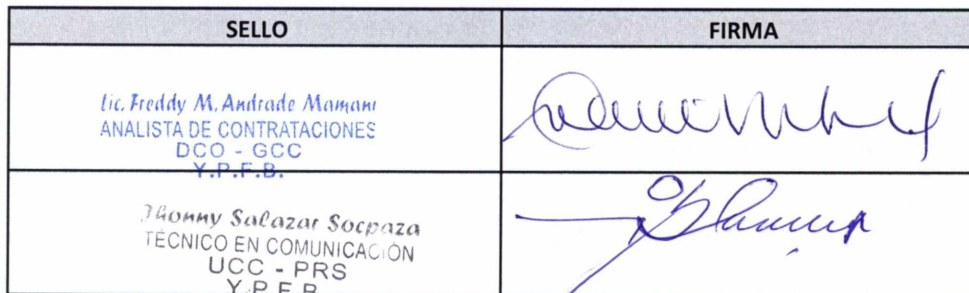 SELLO
FIRMA
Lic. Freddy M. Andrade Mamani
ANALISTA DE CONTRATACIONES
DCO - GCC
Y.P.F.B.
Jhonny Salazar Socpaza
TÉCNICO EN COMUNICACIÓN
UCC - PRS
Y.P.F.B.